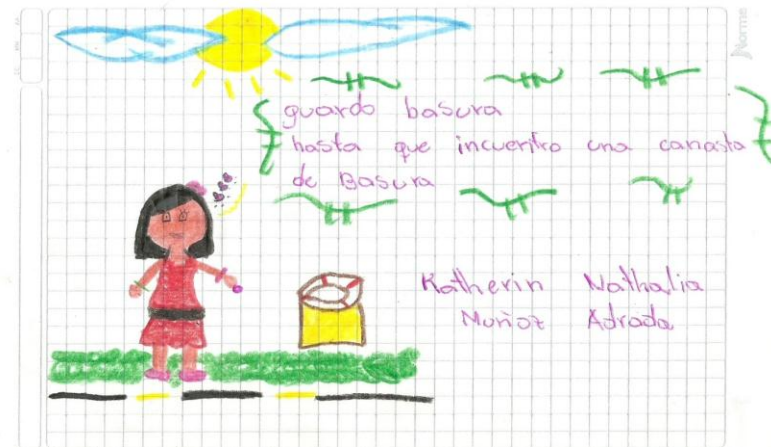 guardo basura
hasta que incuentro una canasta
de Basura
Katherin Nathalia
Muñoz Adrada
Norma